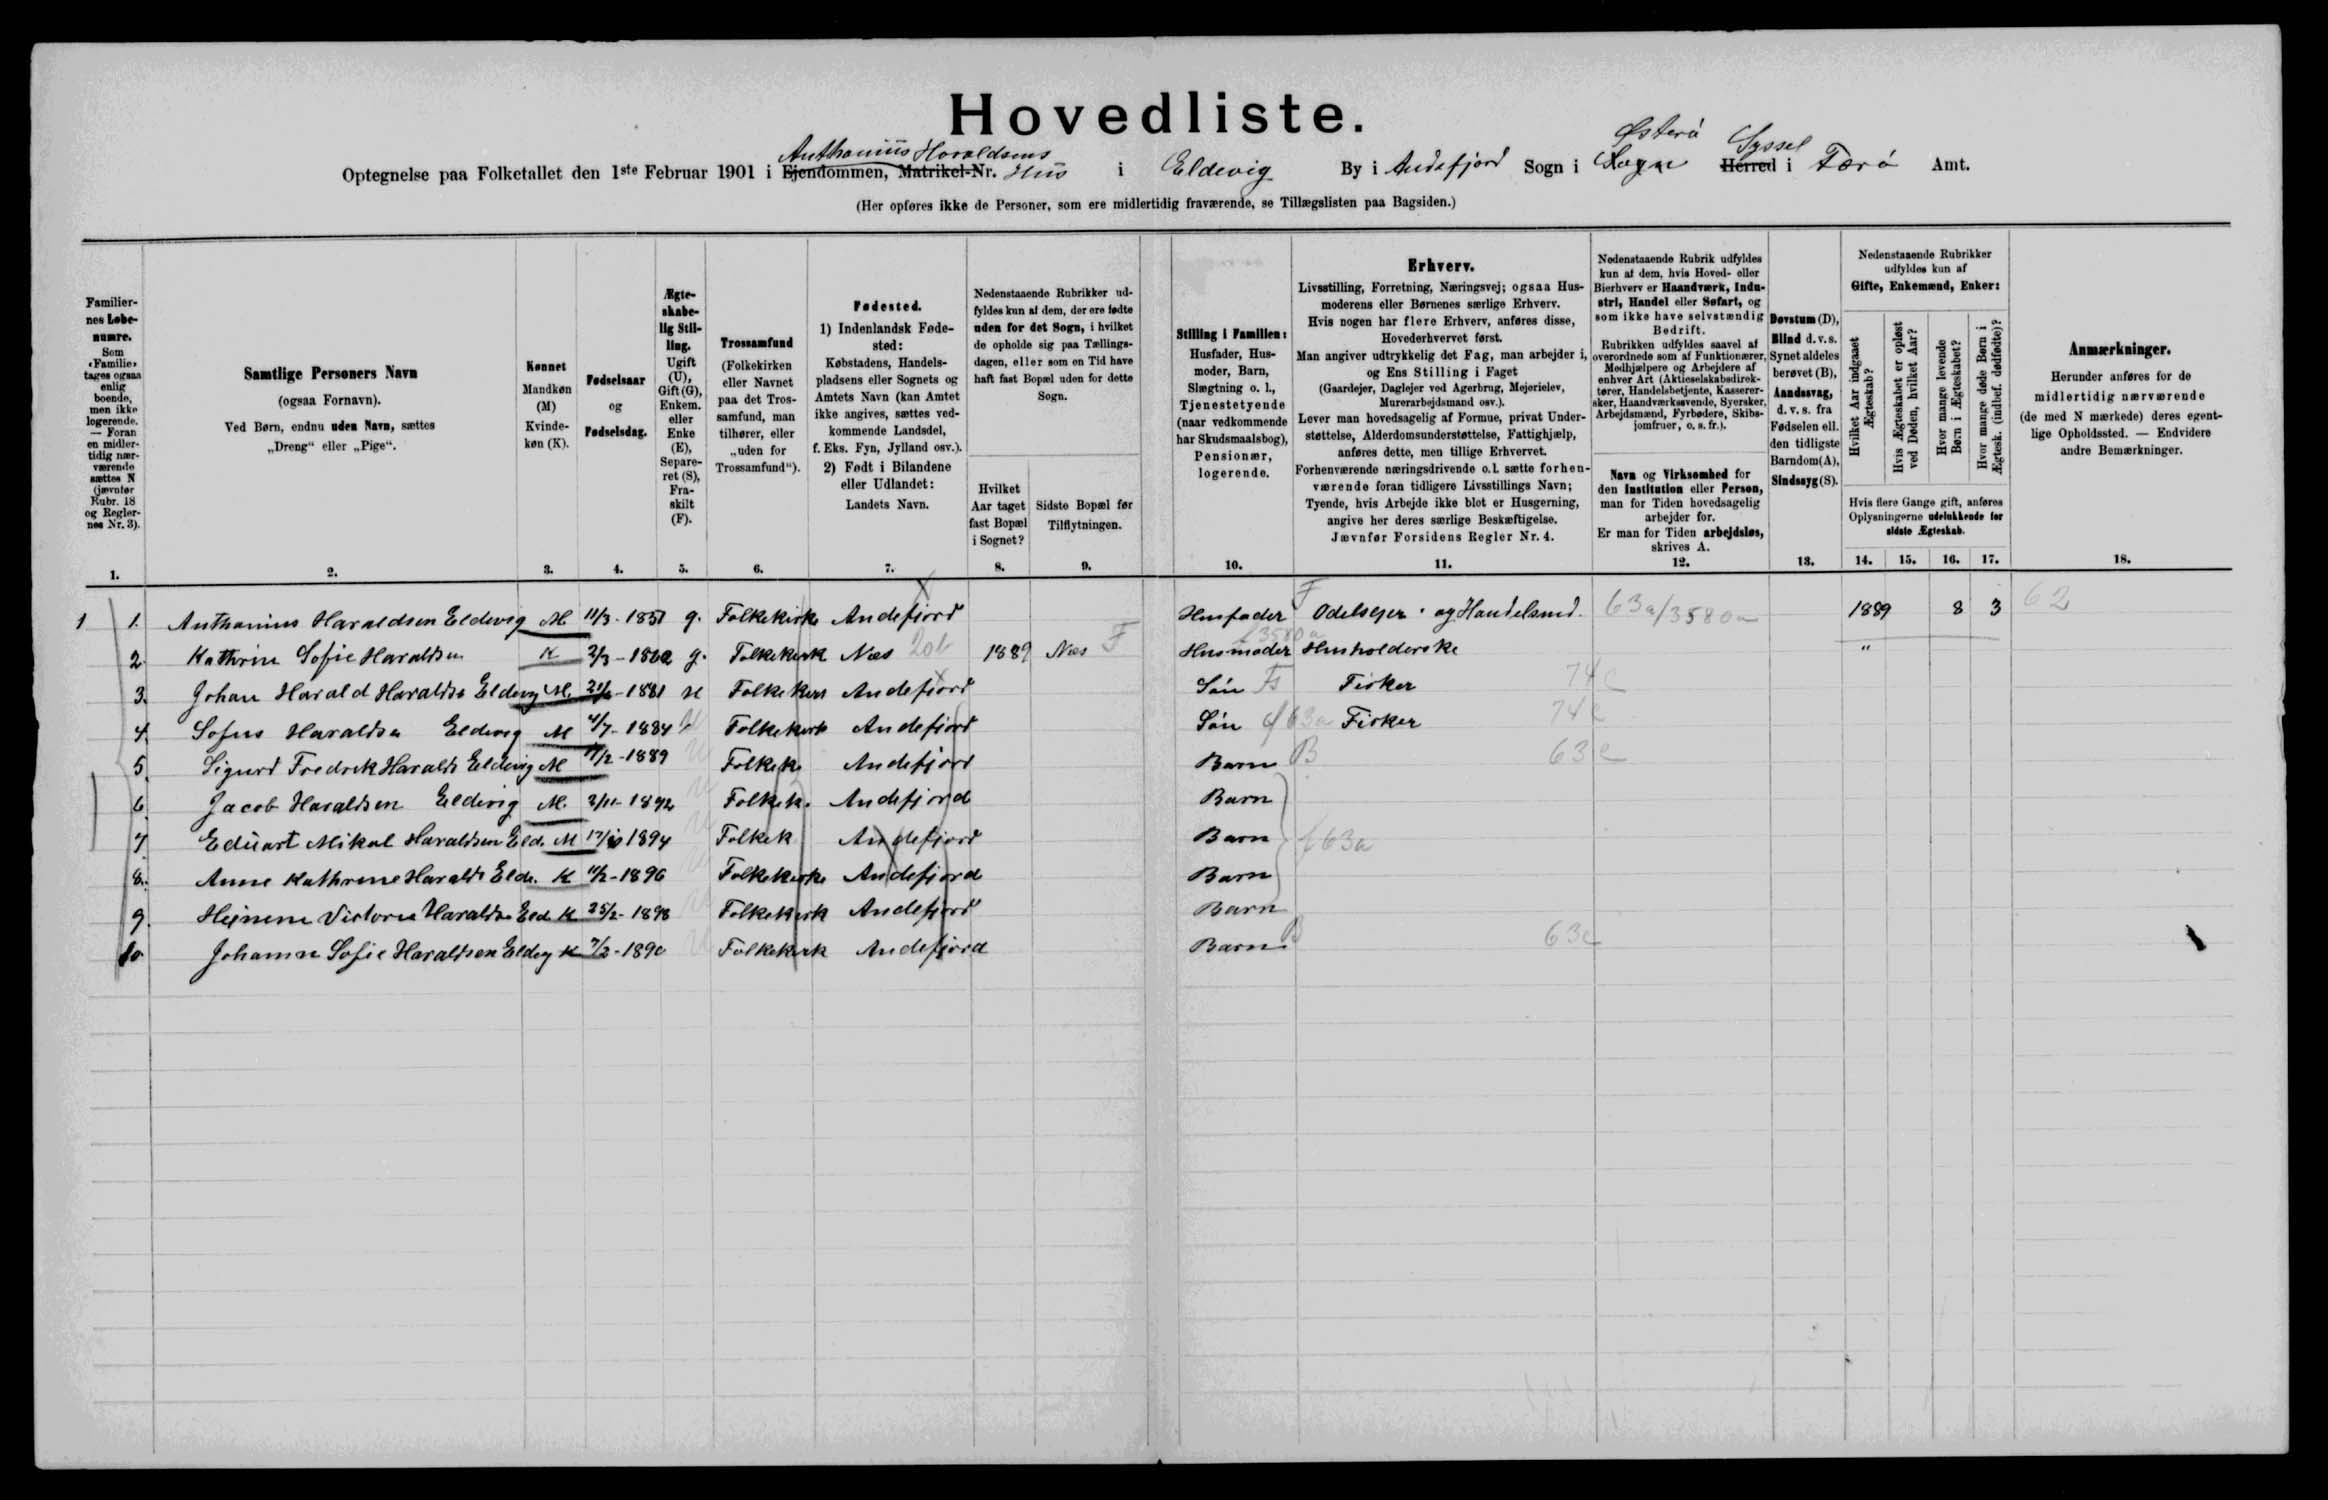 Hovedliste.
Anthoniüs Haraldsens Østerø Syssel
Optegnelse paa Folketallet den 1ste Februar 1901 i Ejendommen, Matrikel-Nr. Hüs i Eldevig By i Andefjord Sogn i Herred i Færø Amt.
(Her opføres ikke de Personer, som ere midlertidig fraværende, se Tillægslisten paa Bagsiden.)
Familiernes Løbenumre.
Som «Familie» tages ogsaa enlig boende, men ikke logerende. — Foran en midlertidig nærværende sættes N (jævnfør Rubr. 18 og Reglernes Nr. 3).
1.
Samtlige Personers Navn
(ogsaa Fornavn).
Ved Børn, endnu uden Navn, sættes
„Dreng“ eller „Pige“.
2.
Kønnet
Mandkøn (M)
Kvindekøn (K).
3.
Fødselsaar
og
Fødselsdag.
4.
Ægteskabelig Stilling.
Ugift (U), Gift (G), Enkem. eller Enke (E), Separeret (S), Fraskilt (F).
5.
Trossamfund
(Folkekirken eller Navnet paa det Trossamfund, man tilhører, eller „uden for Trossamfund“).
6.
Fødested.
1) Indenlandsk Fødested:
Købstadens, Handelspladsens eller Sognets og Amtets Navn (kan Amtet ikke angives, sættes vedkommende Landsdel, f. Eks. Fyn, Jylland osv.).
2) Født i Bilandene eller Udlandet:
Landets Navn.
7.
Nedenstaaende Rubrikker udfyldes kun af dem, der ere fødte uden for det Sogn, i hvilket de opholde sig paa Tællingsdagen, eller som en Tid have haft fast Bopæl uden for dette Sogn.
Hvilket Aar taget fast Bopæl i Sognet?
8.
Sidste Bopæl før Tilflytningen.
9.
Stilling i Familien:
Husfader, Husmoder, Barn, Slægtning o. l., Tjenestetyende (naar vedkommende har Skudsmaalsbog), Pensionær, logerende.
10.
Erhverv.
Livsstilling, Forretning, Næringsvej; ogsaa Husmoderens eller Børnenes særlige Erhverv.
Hvis nogen har flere Erhverv, anføres disse, Hovederhvervet først.
Man angiver udtrykkelig det Fag, man arbejder i, og Ens Stilling i Faget
(Gaardejer, Daglejer ved Agerbrug, Mejerielev, Murerarbejdsmand osv.).
Lever man hovedsagelig af Formue, privat Understøttelse, Alderdomsunderstøttelse, Fattighjælp, anføres dette, men tillige Erhvervet.
Forhenværende næringsdrivende o.l. sætte forhenværende foran tidligere Livsstillings Navn;
Tyende, hvis Arbejde ikke blot er Husgerning, angive her deres særlige Beskæftigelse.
Jævnfør Forsidens Regler Nr. 4.
11.
Nedenstaaende Rubrik udfyldes kun af dem, hvis Hoved- eller Bierhverv er Haandværk, Industri, Handel eller Søfart, og som ikke have selvstændig Bedrift.
Rubrikken udfyldes saavel af overordnede som af Funktionærer, Medhjælpere og Arbejdere af enhver Art (Aktieselskabsdirektører, Handelsbetjente, Kasserersker, Haandværkssvende, Syersker, Arbejdsmænd, Fyrbødere, Skibsjomfruer, o. s. fr.).
Navn og Virksomhed for den Institution eller Person, man for Tiden hovedsagelig arbejder for.
Er man for Tiden arbejdsløs, skrives A.
12.
Døvstum (D), Blind d.v.s. Synet aldeles berøvet (B), Aandssvag, d.v.s. fra Fødselen ell. den tidligste Barndom (A), Sindssyg (S).
13.
Nedenstaaende Rubrikker udfyldes kun af
Gifte, Enkemænd, Enker:
Hvilket Aar indgaaet Ægteskab?
Hvis Ægteskabet er opløst ved Døden, hvilket Aar?
Hvor mange levende Børn i Ægteskabet?
Hvor mange døde Børn i Ægtesk. (indbef. dødfødte)?
Hvis flere Gange gift, anføres Oplysningerne udelukkende for sidste Ægteskab.
14. 15. 16. 17.
Anmærkninger.
Herunder anføres for de midlertidig nærværende (de med N mærkede) deres egentlige Opholdssted. — Endvidere andre Bemærkninger.
18.
1 1. Anthonius Haraldsen Eldevig M 11/3-1851 g. Folkekirke Andefjord Husfader F Odelsejer og Handelsmd. 63a/3580a 1889 8 3 62
2. Kathrin Sofie Haraldsen K 2/3-1862 g. Folkekirk Næs 1889 Næs F Husmoder Husholderske "
3. Johan Harald Haralds Eldevig M. 1881 U Folkekirk Andefjord Søn Fs Fisker 74c
4. Sofus Haraldsen Eldevig M 4/7-1884 U Folkekirk Andefjord Søn f63a Fisker 74c
5. Sigurd Fredrik Haralds Eldevig M 17/2-1889 U Folkek. Andefjord Barn B 63c
6. Jacob Haraldsen Eldevig M. 2/11-1892 U Folkek. Andefjord Barn
7. Edüart Mikal Haraldsen Eld. M 17/10 1894 U Folkek Andefjord Barn f63a
8. Anne Kathrine Haralds Elde. K 11/2-1896 U Folkekirke Andefjord Barn
9. Victoria Haralds Eld K 25/2-1898 U Folkekirk Andefjord Barn
10. Johanna Sofie Haraldsen Eldevg K 7/2-1890 U Folkekirk Andefjord Barn B 63c